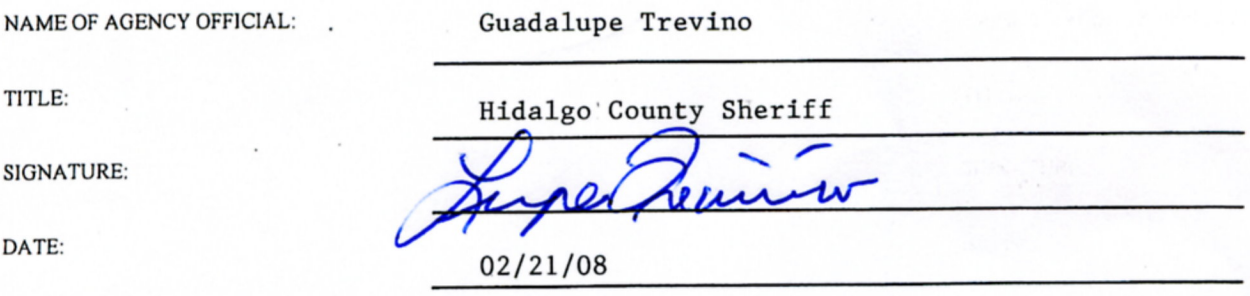 NAME OF AGENCY OFFICIAL: Guadalupe Trevino
TITLE: Hidalgo County Sheriff
SIGNATURE: Lupe Treviño
DATE: 02/21/08